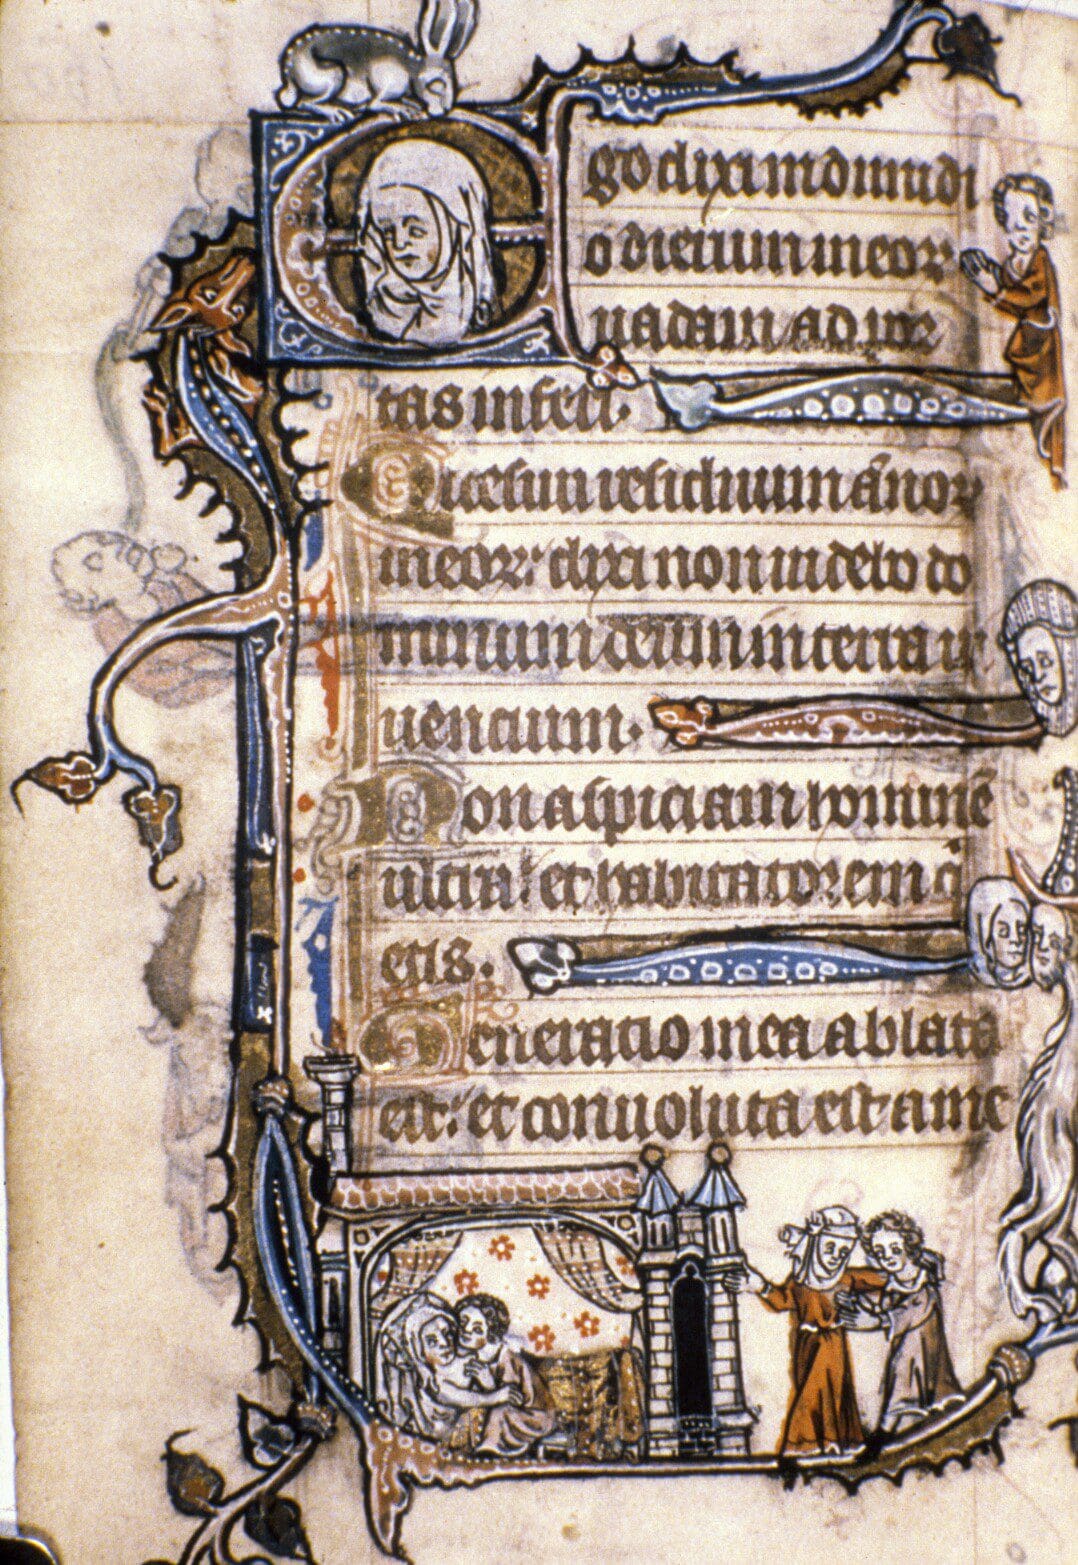 Ego dixi in dimidi
o dierum meor
uadam ad por
tas inferi.
Quesiui residuum annor
meor: dixi non uidebo do
minum deum in terra ui
uencium.
Non aspiciam homine
ultra: et habitatorem q̄
etis.
Generatio mea ablata
est: et conuoluta est a me